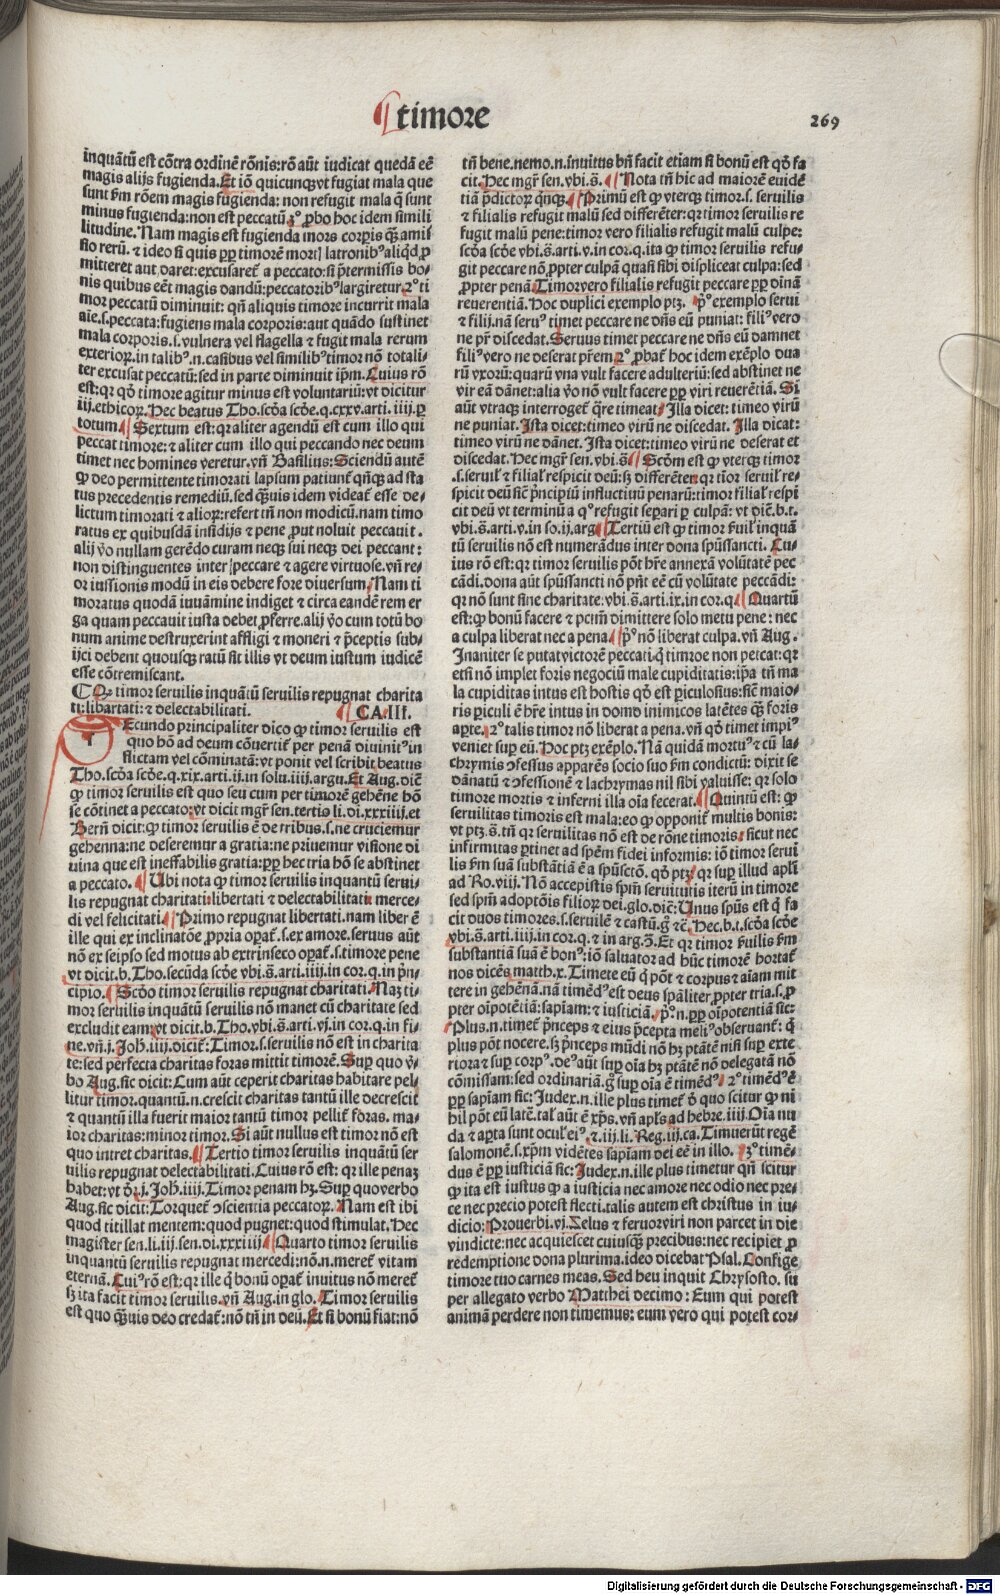 ¶timore
269
inquãtũ est cõtra ordinẽ rõnis: rõ aũt iudicat quedã eẽ
magis alijs fugienda. Et iõ quicunq; vt fugiat mala que
sunt ẜm rõem magis fugienda: non refugit mala q̃ sunt
minus fugienda: non est peccatũ. 3° ꝓbo hoc idem simili
litudine. Nam magis est fugienda mors corpis q̃ꝫ amis
sio rerũ. ⁊ ideo si quis ꝓp timorẽ morti latronibꝰ aliqͥd ꝓ
mitteret aut daret: excusaret̃ a peccato: si p̃termissis bo-
nis quibus eẽt magis dandũ: peccatoribꝰ largiretur. 2° ti
mor peccatũ diminuit: qñ aliquis timore incurrit mala
aĩe. s. peccata: fugiens mala corporis: aut quãdo sustinet
mala corporis. s. vulnera vel flagella ⁊ fugit mala rerum
exterioꝝ. in talibꝰ. n. casibus vel similibꝰ timor nõ totali-
ter excusat peccatũ: sed in parte diminuit ip̃m. Cuius rõ
est: qꝛ qõ timore agitur minus est voluntariũ: vt dicitur
iij. ethicoꝝ. Hec beatus Tho. scõa scõe. q. cxxv. arti. iiij. ꝑ
totum. ¶Sextum est: qꝛ aliter agendũ est cum illo qui
peccat timore: ⁊ aliter cum illo qui peccando nec deum
timet nec homines veretur. vñ Basilius: Sciendũ autẽ
ꝙ deo permittente timorati lapsum patiunt̃ qñq; ad sta
tus precedentis remediũ. sed q̃uis idem videat̃ esse de-
lictum timorati ⁊ alioꝝ: refert tñ non modicũ. nam timo
ratus ex quibusdã insidijs ⁊ pene ꝓut noluit peccauit.
alij ṽo nullam gerẽdo curam neq; sui neq; dei peccant:
non distinguentes inter peccare ⁊ agere virtuose. vñ re-
or iussionis modũ in eis debere fore diuersum. Nam ti
moratus quodã iuuamine indiget ⁊ circa eandẽ rem er
ga quam peccauit iusta debet ꝓferre. alij ṽo cum totũ bo
num anime destruxerint affligi ⁊ moneri ⁊ p̃ceptis sub-
ijci debent quousq; ratũ sit illis vt deum iustum iudicẽ
esse cõtremiscant.
¶Qꝙ timor seruilis inquãtũ seruilis repugnat charita
ti: libertati: ⁊ delectabilitati. ¶CA. III.
Secundo principaliter dico ꝙ timor seruilis est
quo hõ ad deum cõuertit̃ per penã diuinitꝰ in
flictam vel cõminatã: vt ponit vel scribit beatus
Tho. scõa scõe. q. xix. arti. ij. in solu. iiij. argu. Et Aug. diẽ
ꝙ timor seruilis est quo seu cum per timorẽ gehẽne hõ
se cõtinet a peccato: vt dicit mgr̃ sen. tertio li. di. xxxiiij. et
Berñ dicit: ꝙ timor seruilis ẽ de tribus. s. ne cruciemur
gehenna: ne deseremur a gratia: ne priuemur visione di
uina que est ineffabilis gratia: ꝓp hec tria hõ se abstinet
a peccato. ¶Ubi nota ꝙ timor seruilis inquantũ serui-
lis repugnat charitati: libertati ⁊ delectabilitati: merce-
di vel felicitati. ¶Primo repugnat libertati. nam liber ẽ
ille qui ex inclinatõe ꝓpria opat̃. s. ex amore. seruus aũt
nõ ex seipso sed motus ab extrinseco opat̃. s. timore pene
vt dicit. b. Tho. secũda scõe vbi. s̃. arti. iiij. in cor. q. in p̃n-
cipio. ¶Scõo timor seruilis repugnat charitati. Naꝫ ti-
mor seruilis inquãtũ seruilis nõ manet cũ charitate sed
excludit eam: vt dicit. b. Tho. vbi. s̃. arti. vj. in cor. q. in fi-
ne. vñ. j. Joh̃. iiij. dicit̃: Timor. s. seruilis nõ est in charita
te: sed perfecta charitas foras mittit timorẽ. Sup quo ṽ-
bo Aug. sic dicit: Cum aũt ceperit charitas habitare pel-
litur timor. quantũ. n. crescit charitas tantũ ille decrescit
⁊ quantũ illa fuerit maior tantũ timor pellit̃ foras. ma-
ior charitas: minor timor. Si aũt nullus est timor nõ est
quo intret charitas. ¶Tertio timor seruilis inquãtũ ser
uilis repugnat delectabilitati. Cuius rõ est: qꝛ ille penaꝫ
habet: vt ď. j. Joh̃. iiij. Timor penam hꝫ. Sup quo verbo
Aug. sic dicit: Torquet̃ ↄscientia peccatoꝝ. Nam est ibi
quod titillat mentem: quod pugnet: quod stimulat. Hec
magister sen. li. iij. sen. di. xxxiiij. ¶Quarto timor seruilis
inquantũ seruilis repugnat mercedi: nõ. n. meret̃ vitam
eternã. Cuiꝰ rõ est: qꝛ ille q̃ bonũ opat̃ inuitus nõ meret̃
sꝫ ita facit timor seruilis. vñ Aug. in glo. Timor seruilis
est quo q̃uis deo credat̃: nõ tñ in deũ. Et si bonũ fiat: nõ
tñ bene. nemo. n. inuitus bñ facit etiam si bonũ est qõ fa
cit. Hec mgr̃ sen. vbi. s̃. ¶Nota tñ hic ad maiorẽ euidẽ
tiã p̃dictoꝝ qͥnq;. ¶Primũ est ꝙ vterq; timor. s. seruilis
⁊ filialis refugit malũ sed differẽter: qꝛ timor seruilis re
fugit malũ pene: timor vero filialis refugit malũ culpe:
scõa scõe vbi. s̃. arti. v. in cor. q. ita ꝙ timor seruilis refu-
git peccare nõ ꝓpter culpã quasi sibi displiceat culpa: sed
ꝓpter penã. Timor vero filialis refugit peccare ꝓp diuinã
reuerentiã. Hoc duplici exemplo ptꝫ. p̃° exemplo serui
⁊ filij. nã seruꝰ timet peccare ne dñs eũ puniat: filiꝰ vero
ne pr̃ discedat. Seruus timet peccare ne dñs eũ damnet
filiꝰ vero ne deserat pr̃em. 2° ꝓbat̃ hoc idem exẽplo dua
rũ vxorũ: quarũ vna vult facere adulteriũ: sed abstinet ne
vir eã dãnet: alia ṽo nõ vult facere ꝓp viri reuerẽtiã. Si
aũt vtraq; interroget̃ q̃re timeat. Illa dicet: timeo virũ
ne puniat. Ista dicet: timeo virũ ne discedat. Illa dicat:
timeo virũ ne dãnet. Ista dicet: timeo virũ ne deserat et
discedat. Hec mgr̃ sen. vbi. s̃. ¶Scõm est ꝙ vterq; timor
. s. seruil̃ ⁊ filial̃ respicit deũ: sꝫ differẽter: qꝛ tĩor seruil̃ re-
spicit deũ sic̃ p̃ncipiũ inflictiuũ penarũ: timor filial̃ respi
cit deũ vt terminũ a qͦ refugit separi ꝑ culpã: vt diẽ. b. t.
vbi. s̃. arti. v. in so. ij. arg. ¶Tertiũ est ꝙ timor ẜuil̃ inquã
tũ seruilis nõ est numerãdus inter dona sp̃ussancti. Cu-
ius rõ est: qꝛ timor seruilis põt hr̃e annexã volũtatẽ pec
cãdi. dona aũt sp̃ussancti nõ pñt eẽ cũ volũtate peccãdi:
qꝛ nõ sunt sine charitate: vbi. s̃. arti. ix. in cor. q. ¶Quartũ
est: ꝙ bonũ facere ⁊ pctm̃ dimittere solo metu pene: nec
a culpa liberat nec a pena. ¶p̃° nõ liberat culpa. vñ Aug.
Inaniter se putat victorẽ peccati q̃ timroe non peccat: qꝛ
etsi nõ implet foris negociũ male cupiditatis: ip̃a tñ ma
la cupiditas intus est hostis qõ est ꝑiculosius: sic̃ maio-
ris ꝑiculi ẽ hr̃e intus in domo inimicos latẽtes q̃ꝫ foris
apte. 2° talis timor nõ liberat a pena. vñ qõ timet impiꝰ
veniet sup eũ. Hoc ptꝫ exẽplo. Nã quidã mortuꝰ ⁊ cũ la-
chrymis ↄfessus apparẽs socio suo ẜm condictũ: dixit se
dãnatũ ⁊ ↄfessionẽ ⁊ lachrymas nil sibi valuisse: qꝛ solo
timore mortis ⁊ inferni illa oĩa fecerat. ¶Quintũ est: ꝙ
seruilitas timoris est mala: eo ꝙ opponit̃ multis bonis:
vt ptꝫ. s̃. tñ qꝛ seruilitas nõ est de rõne timoris. sicut nec
infirmitas ptinet ad spẽm fidei informis: iõ timor serui
lis ẜm suã substãtiã ẽ a sp̃uscto. qõ ptꝫ: qꝛ sup illud apl̃i
ad Ro. viij. Nõ accepistis sp̃m seruitutis iterũ in timore
sed sp̃m adoptõis filioꝝ dei. glo. diẽ: Unus sp̃us est q̃ fa
cit duos timores. s. seruilẽ ⁊ castũ. g̃ ⁊c̃. Hec. b. t. scõa scõe
vbi. s̃. arti. iiij. in cor. q. ⁊ in arg. 3. Et qꝛ timor ẜuilis ẜm
substantiã suã ẽ bonꝰ: iõ saluator ad hũc timorẽ hortat̃
nos dicẽs. matth. x. Timete eũ q̃ põt ⁊ corpus ⁊ aĩam mit
tere in gehẽnã. nã timẽdꝰ est deus sp̃aliter ꝓpter tria. s. ꝓ
pter oĩpotẽtiã: sapĩam: ⁊ iusticiã. p̃°. n. ꝓp oĩpotentiã sic:
Plus. n. timet̃ p̃nceps ⁊ eius p̃cepta meliꝰ obseruant̃: q̃
plus põt nocere. sꝫ p̃nceps mũdi nõ hꝫ ptãtẽ nisi sup exte
riora ⁊ sup corpꝰ. deꝰ aũt sup oĩa hꝫ ptãtẽ nõ delegatã nõ
cõmissam: sed ordinariã. g̃ sup oĩa ẽ timẽdꝰ. 2° timẽdꝰ ẽ
ꝓp sapĩam sic: Judex. n. ille plus timet̃ ď quo scitur ꝙ ni
hil põt eũ latẽ. tal̃ aũt ẽ xp̃s. vñ apl̃s ad hebre. iiij. Oĩa nu
da ⁊ apta sunt ocul̃ eiꝰ. ⁊. iij. li. Reg. iij. ca. Timuerũt regẽ
salomonẽ. s. xp̃m vidẽtes sapĩam dei eẽ in illo. 3° timẽ-
dus ẽ ꝓp iusticiã sic: Judex. n. ille plus timetur qñ scitur
ꝙ ita est iustus ꝙ a iusticia nec amore nec odio nec pre-
ce nec precio potest flecti. talis autem est christus in iu-
dicio: Prouerbi. vj. Zelus ⁊ feruor viri non parcet in die
vindicte: nec acquiescet cuiusq; precibus: nec recipiet ꝓ
redemptione dona plurima. ideo dicebat Psal. Confige
timore tuo carnes meas. Sed heu inquit Chrysosto. su
per allegato verbo Matthei decimo: Eum qui potest
animã perdere non timemus: eum vero qui potest cor-
Digitalisierung gefördert durch die Deutsche Forschungsgemeinschaft - DFG